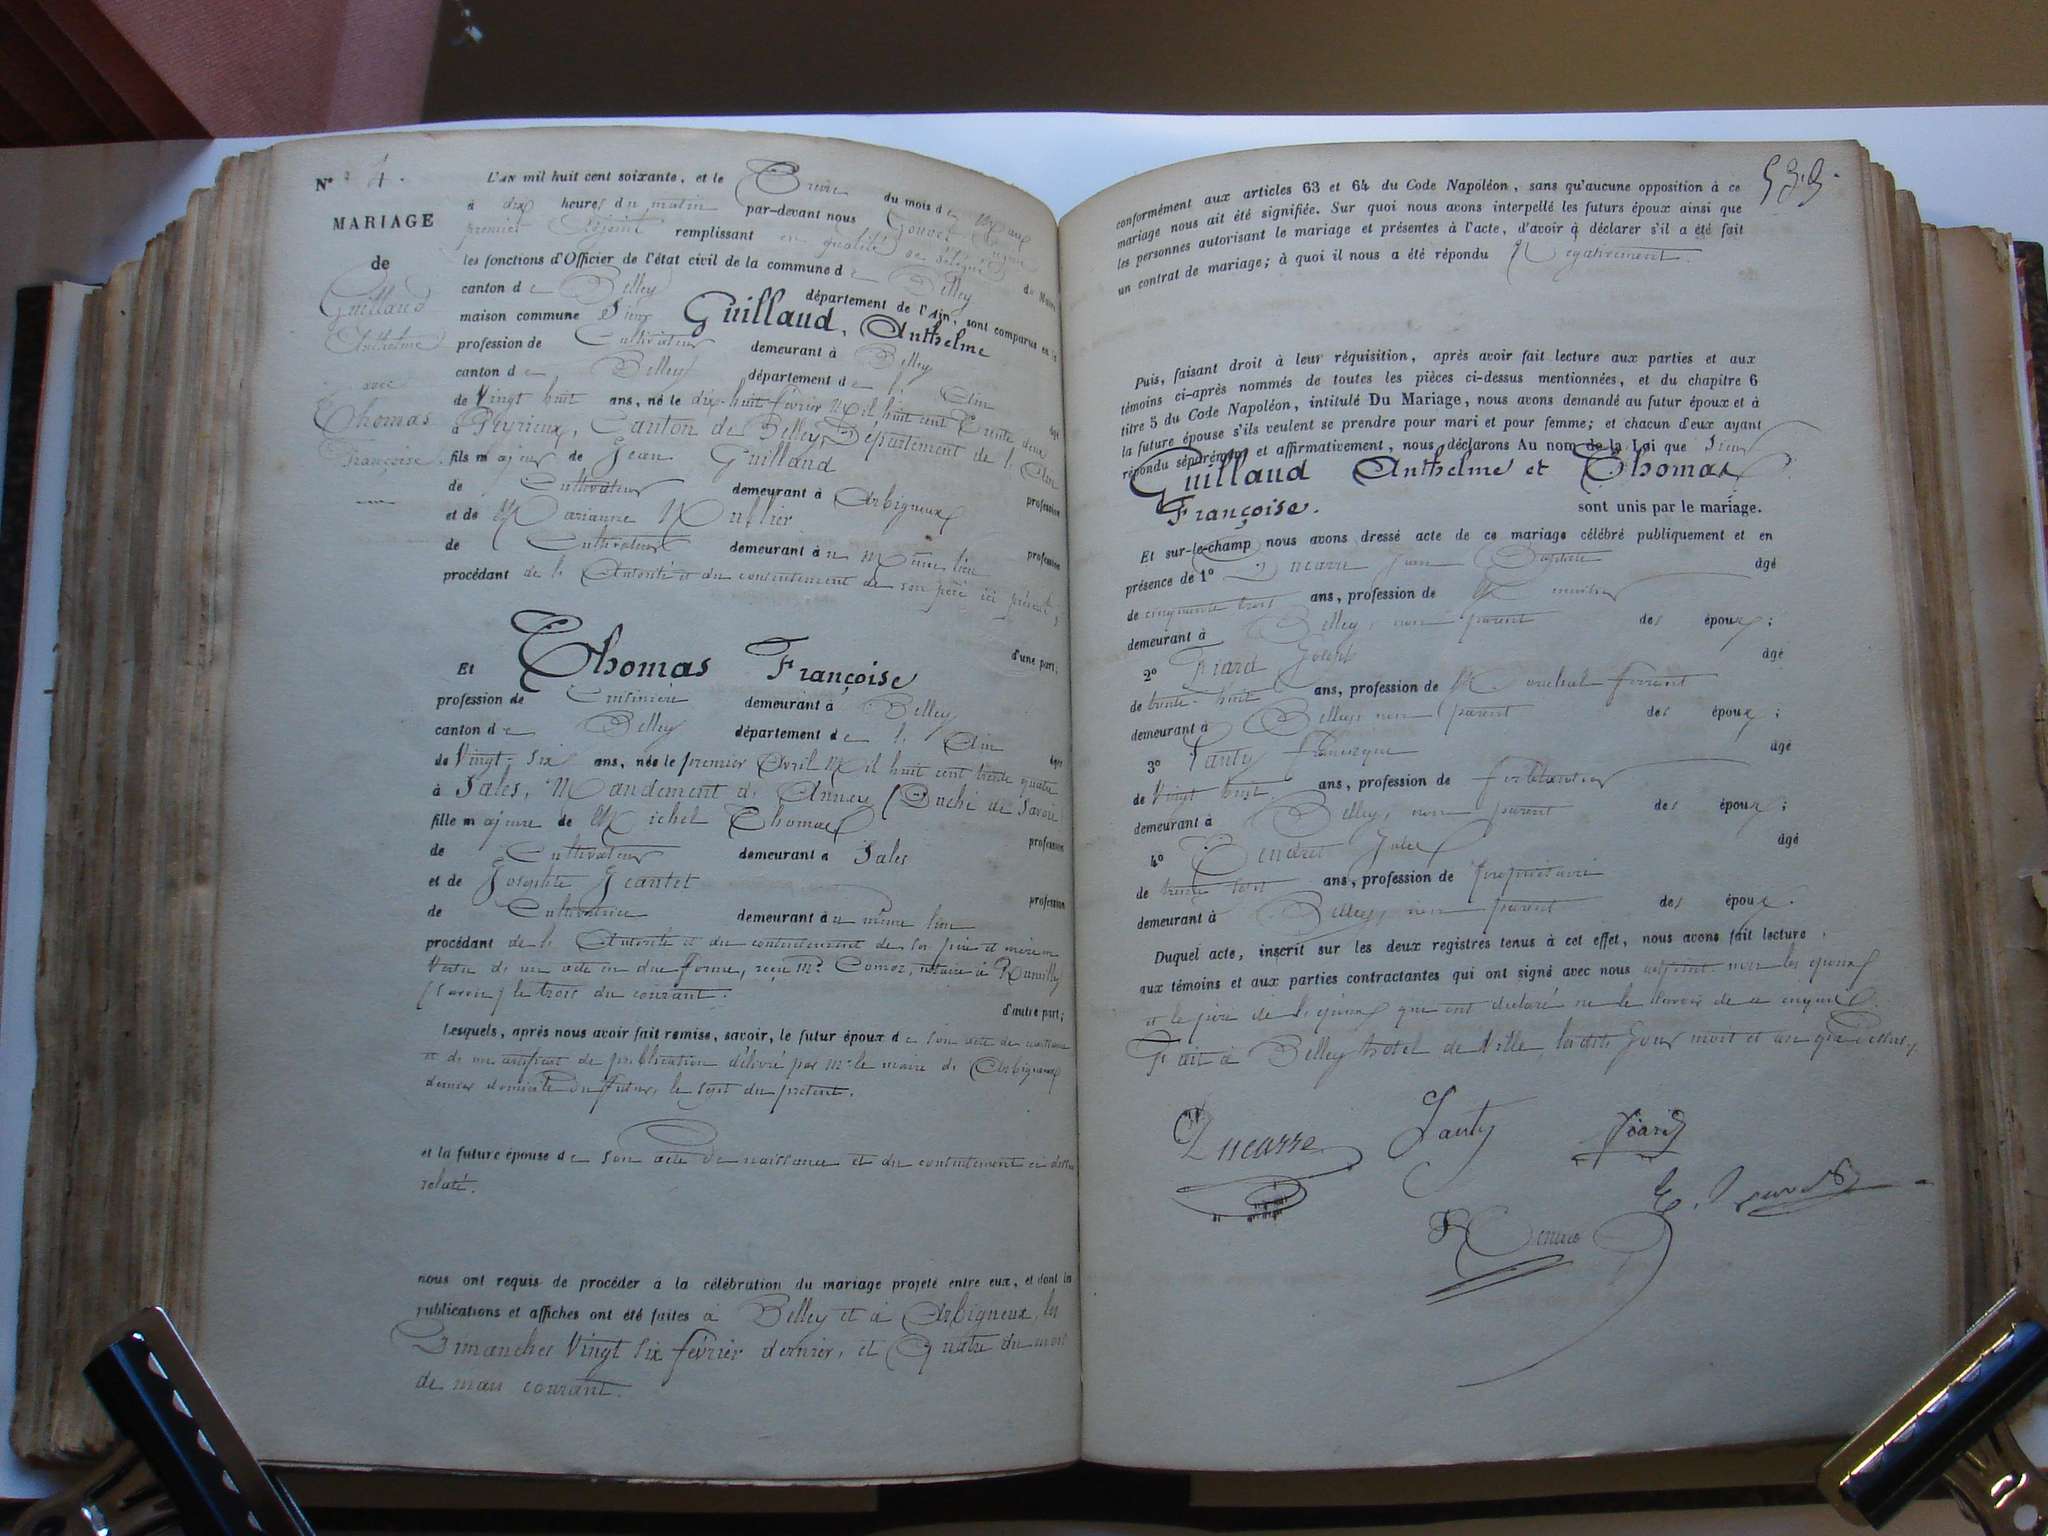 N° 4.
MARIAGE
de
Guillaud
Anthelme
avec
Thomas
Françoise.
L'AN mil huit cent soixante, et le Onze du mois de Mars
à dix heures du matin par-devant nous
premier Adjoint remplissant en qualité de délégué du Maire
les fonctions d'Officier de l'état civil de la commune de Belley
canton de Belley département de l'Ain, sont comparus en la
maison commune Sieur Guillaud, Anthelme
profession de Cultivateur demeurant à Belley
canton de Belley département de l'Ain âgé
de Vingt huit ans, né le dix-huit février Mil huit cent Trente deux
à Peyrieux, Canton de Belley, Département de l'Ain
fils majeur de Jean Guillaud profession
de Cultivateur demeurant à Arbigneux
et de Marianne Mullier profession
de Cultivateur demeurant au Même lieu
procédant de l'Autorité et du consentement de son père ici présent,
d'une part;
Et Thomas Françoise
profession de Cuisinière demeurant à Belley
canton de Belley département de l'Ain âgée
de Vingt-six ans, née le premier Avril Mil huit cent trente quatre
à Sales, Mandement d'Annecy (Duché de Savoie
fille majeure de Michel Thomas profession
de Cultivateur demeurant à Sales
et de Josephte Jeantet profession
de Cultivatrice demeurant au même lieu
procédant de l'Autorité et du consentement de son père et mère en
vertu d'un acte en due forme, reçu Me Comoz, notaire à Rumilly
(Savoie) le trois du courant. d'autre part;
Lesquels, après nous avoir fait remise, savoir, le futur époux de son acte de naissance
et de un certificat de publication délivré par Mr le maire d'Arbigneux
dernier domicile du futur, le sept du présent.
et la future épouse de son acte de naissance et du consentement ci dessus
relaté.
nous ont requis de procéder à la célébration du mariage projeté entre eux, et dont les
publications et affiches ont été faites à Belley et à Arbigneux, les
Dimanches Vingt six février dernier, et Quatre du mois
de mars courant.
539.
conformément aux articles 63 et 64 du Code Napoléon, sans qu'aucune opposition à ce
mariage nous ait été signifiée. Sur quoi nous avons interpellé les futurs époux ainsi que
les personnes autorisant le mariage et présentes à l'acte, d'avoir à déclarer s'il a été fait
un contrat de mariage; à quoi il nous a été répondu Négativement.
Puis, faisant droit à leur réquisition, après avoir fait lecture aux parties et aux
témoins ci-après nommés de toutes les pièces ci-dessus mentionnées, et du chapitre 6
titre 5 du Code Napoléon, intitulé Du Mariage, nous avons demandé au futur époux et à
la future épouse s'ils veulent se prendre pour mari et pour femme; et chacun d'eux ayant
répondu séparément et affirmativement, nous déclarons Au nom de la Loi que Sieur
Guillaud Anthelme et Thomas
Françoise. sont unis par le mariage.
Et sur-le-champ nous avons dressé acte de ce mariage célébré publiquement et en
présence de 1° Ducarre Jean Baptiste âgé
de cinquante trois ans, profession de
demeurant à Belley, non parent des époux;
2° Fiard Joseph âgé
de trente-huit ans, profession de Maréchal ferrant
demeurant à Belley, non parent des époux;
3° Lanty Francisque âgé
de Vingt huit ans, profession de ferblantier
demeurant à Belley, non parent des époux;
4° Jules âgé
de trente sept ans, profession de propriétaire
demeurant à Belley, non parent des époux.
Duquel acte, inscrit sur les deux registres tenus à cet effet, nous avons fait lecture
aux témoins et aux parties contractantes qui ont signé avec nous adjoint non les époux
et le père de l'époux qui ont déclaré ne le savoir de ce enquis.
Fait à Belley hotel de Ville, les dits Jour mois et an que Dessus.
Ducarre Lanty Fiard